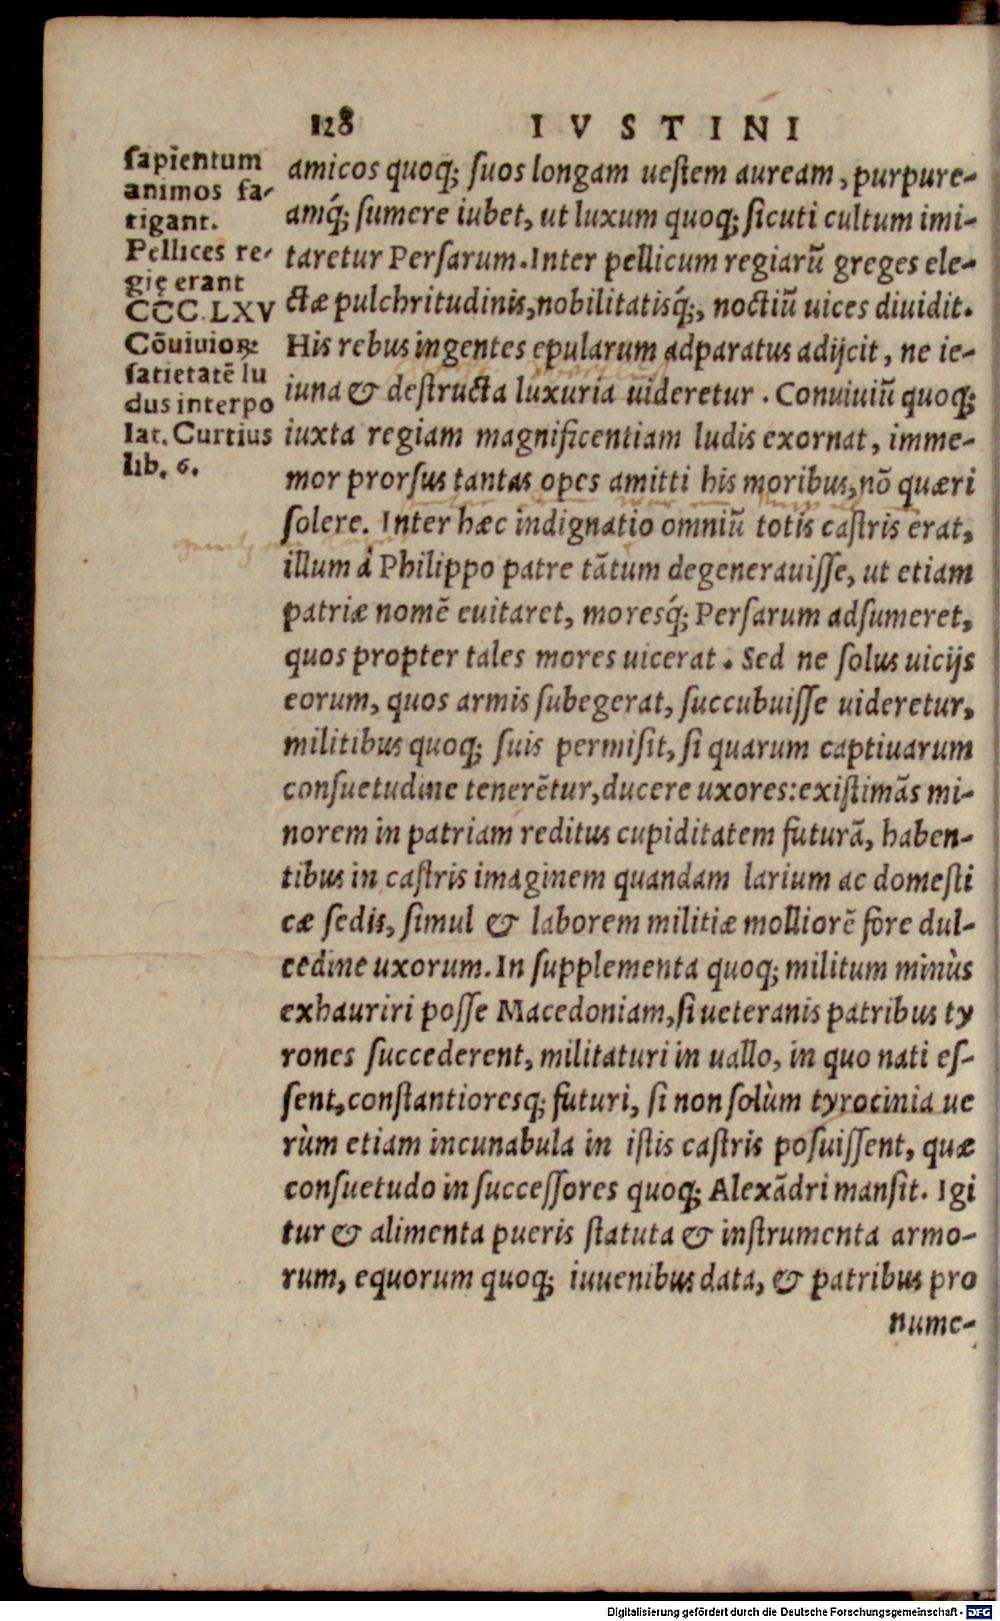 128 IVSTINI
sapientum
animos fa-
tigant.
Pellices re-
gię erant
CCC.LXV
Cōuiuioꝝ:
satietatē lu
dus interpo
lat. Curtius
lib. 6.
amicos quoq; suos longam uestem auream, purpure-
amq́; sumere iubet, ut luxum quoq; sicuti cultum imi-
taretur Persarum. Inter pellicum regiarū greges ele-
ctæ pulchritudinis, nobilitatisq́;, noctiū uices diuidit.
His rebus ingentes epularum adparatus adijcit, ne ie-
iuna & destructa luxuria uideretur. Conuiuiū quoq;
iuxta regiam magnificentiam ludis exornat, imme-
mor prorsus tantas opes amitti his moribus, nō quæri
solere. Inter hæc indignatio omniū totis castris erat,
illum à Philippo patre tātum degenerauisse, ut etiam
patriæ nomē euitaret, moresq́; Persarum adsumeret,
quos propter tales mores uicerat. Sed ne solus uicijs
eorum, quos armis subegerat, succubuisse uideretur,
militibus quoq; suis permisit, si quarum captiuarum
consuetudine tenerētur, ducere uxores: existimās mi-
norem in patriam reditus cupiditatem futurā, haben-
tibus in castris imaginem quandam larium ac domesti
cæ sedis, simul & laborem militiæ molliorē fore dul-
cedine uxorum. In supplementa quoq; militum minùs
exhauriri posse Macedoniam, si ueteranis patribus ty
rones succederent, militaturi in uallo, in quo nati es-
sent, constantioresq; futuri, si non solùm tyrocinia ue
rùm etiam incunabula in istis castris posuissent, quæ
consuetudo in successores quoq; Alexādri mansit. Igi
tur & alimenta pueris statuta & instrumenta armo-
rum, equorum quoq; iuuenibus data, & patribus pro
nume-
Digitalisierung gefördert durch die Deutsche Forschungsgemeinschaft - DFG